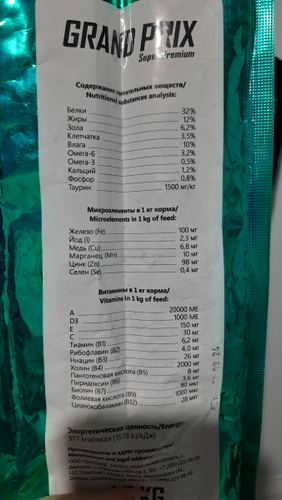 GRAND PRIX
Super Premium
Содержание питательных веществ/
Nutritional substances analysis:
Белки 32%
Жиры 12%
Зола 6,2%
Клетчатка 3,5%
Влага 10%
Омега-6 3,2%
Омега-3 0,5%
Кальций 1,2%
Фосфор 0,8%
Таурин 1500 мг/кг
Микроэлементы в 1 кг корма/
Microelements in 1 kg of feed:
Железо (Fe) 100 мг
Йод (I) 2,3 мг
Медь (Cu) 6,8 мг
Марганец (Mn) 10 мг
Цинк (Zn) 98 мг
Селен (Se) 0,4 мг
Витамины в 1 кг корма/
Vitamins in 1 kg of feed:
A 20000 МЕ
D3 1000 МЕ
E 150 мг
C 30 мг
Тиамин (В1) 6,2 мг
Рибофлавин (В2) 4,0 мг
Ниацин (В3) 26 мг
Холин (В4) 2000 мг
Пантотеновая кислота (В5) 8 мг
Пиридоксин (В6) 3,6 мг
Биотин (В7) 80 мкг
Фолиевая кислота (В9) 1065 мкг
Цианокобаламин (В12) 28 мкг
Энергетическая ценность/Energy
377 ккал/kkal (1578 kJ/кДж)
KG